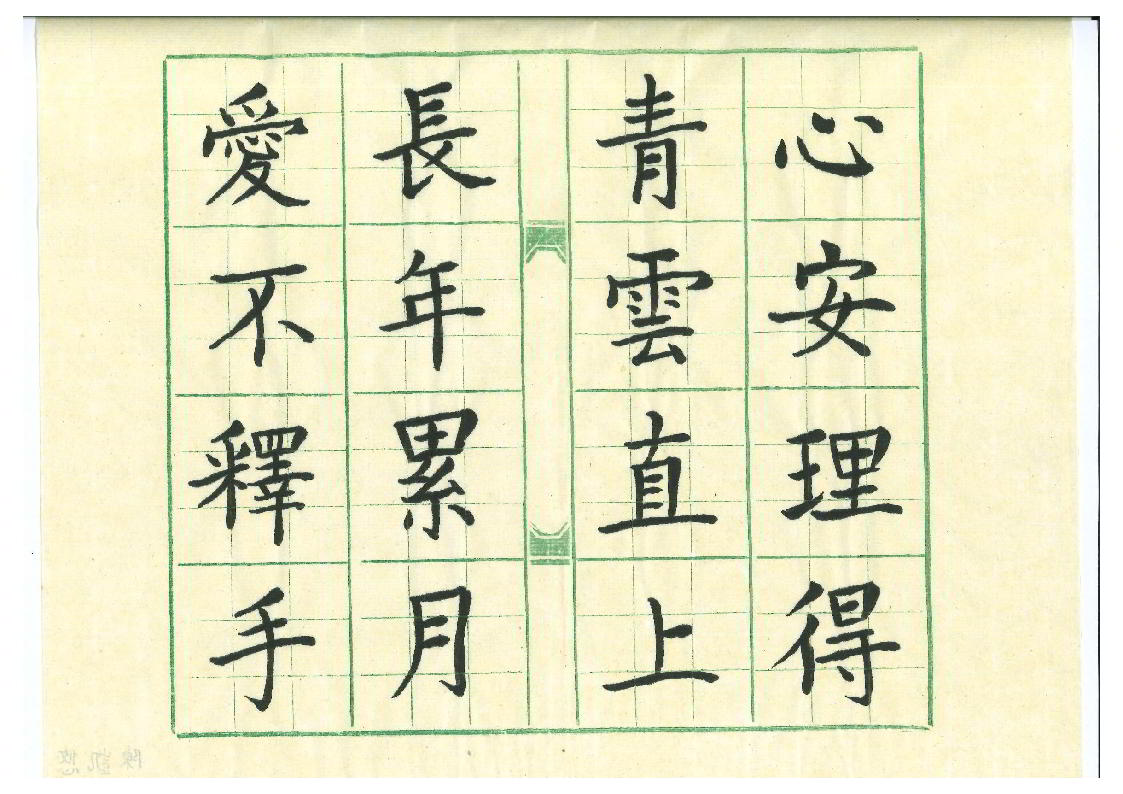 心安理得
青雲直上
長年累月
愛不釋手
陳凱悠